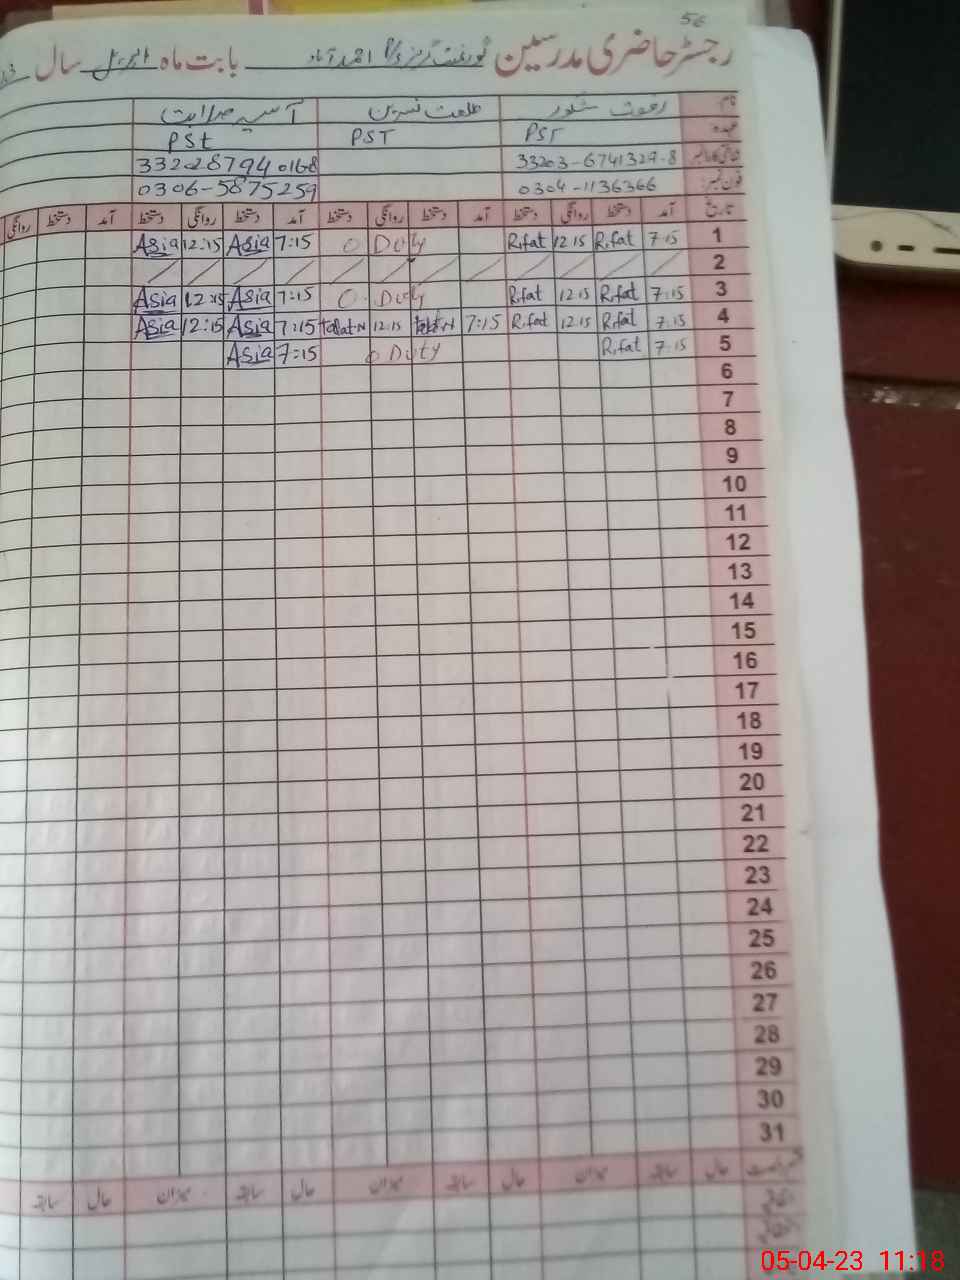 56
رجسٹر حاضری مدرسین گورنمنٹ گرلز احمد آباد بابت ماہ اپریل سال
نام رفعت شکور طلعت نسرین آسیہ
عہدہ PST PST PSt
33203-6741327-8 3320287940168
فون نمبر 0304-1136366 0306-5875259
تاریخ آمد دستخط روانگی دستخط آمد دستخط روانگی دستخط آمد دستخط روانگی دستخط آمد دستخط روانگی
1 7:15 Rifat 12:15 Rifat O Duty 7:15 Asia 12:15 Asia
2
3 7:15 Rifat 12:15 Rifat O Duty 7:15 Asia 12:15 Asia
4 7:15 Rifat 12:15 Rifat 7:15 Talat.N 12:15 Talat.N 7:15 Asia 12:15 Asia
5 7:15 Rifat O Duty 7:15 Asia
6
7
8
9
10
11
12
13
14
15
16
17
18
19
20
21
22
23
24
25
26
27
28
29
30
31
حال سابقہ میزان حال سابقہ میزان حال سابقہ میزان حال سابقہ
05-04-23 11:18